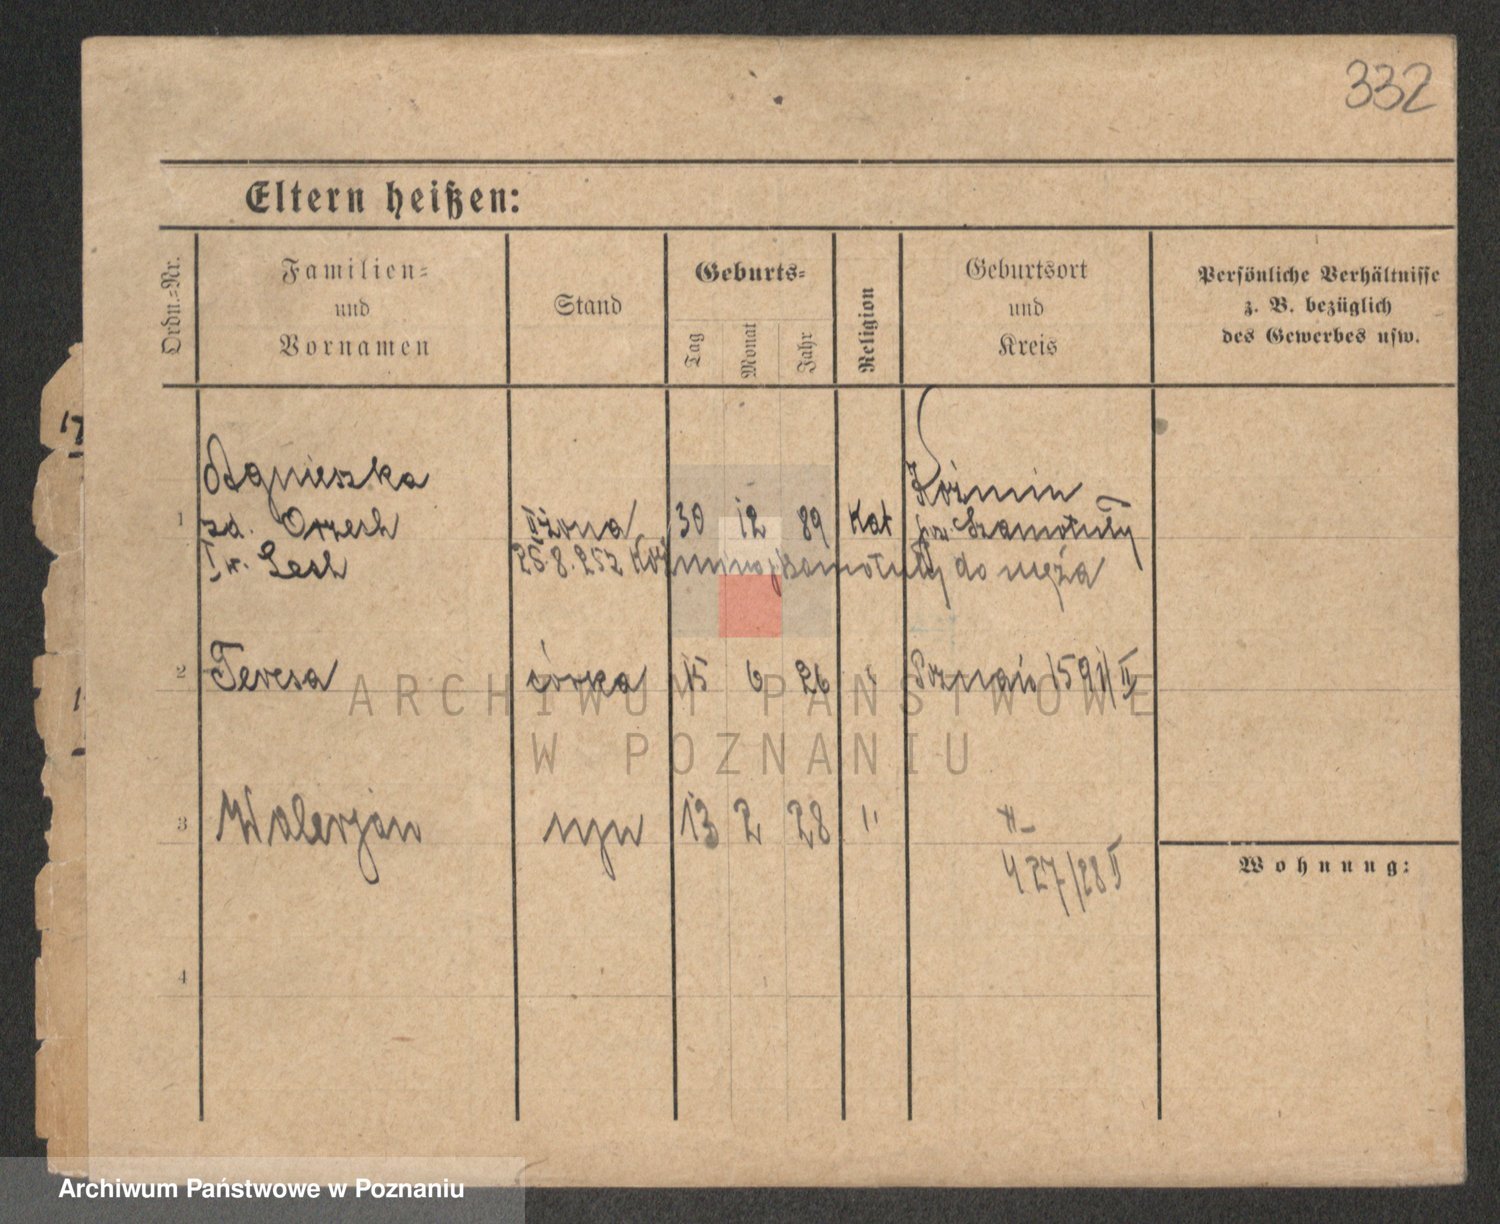 332
Eltern heißen:
Ordn.=Nr.
Familien=
und
Vornamen
Stand
Geburts=
Tag
Monat
Jahr
Religion
Geburtsort
und
Kreis
Persönliche Verhältnisse
z. B. bezüglich
des Gewerbes usw.
Agnieszka
Koźmin
1 zd. Orzech IIżona 30 12 89 Kat Szamotuły
I v. Lesh 25.8.25 z do męża
2 Teresa córka 15 6 26 " Poznań 1591/II
3 Waleryan syn 13 2 28 "
427/28 II
Wohnung:
4
ARCHIWUM PAŃSTWOWE
W POZNANIU
Archiwum Państwowe w Poznaniu